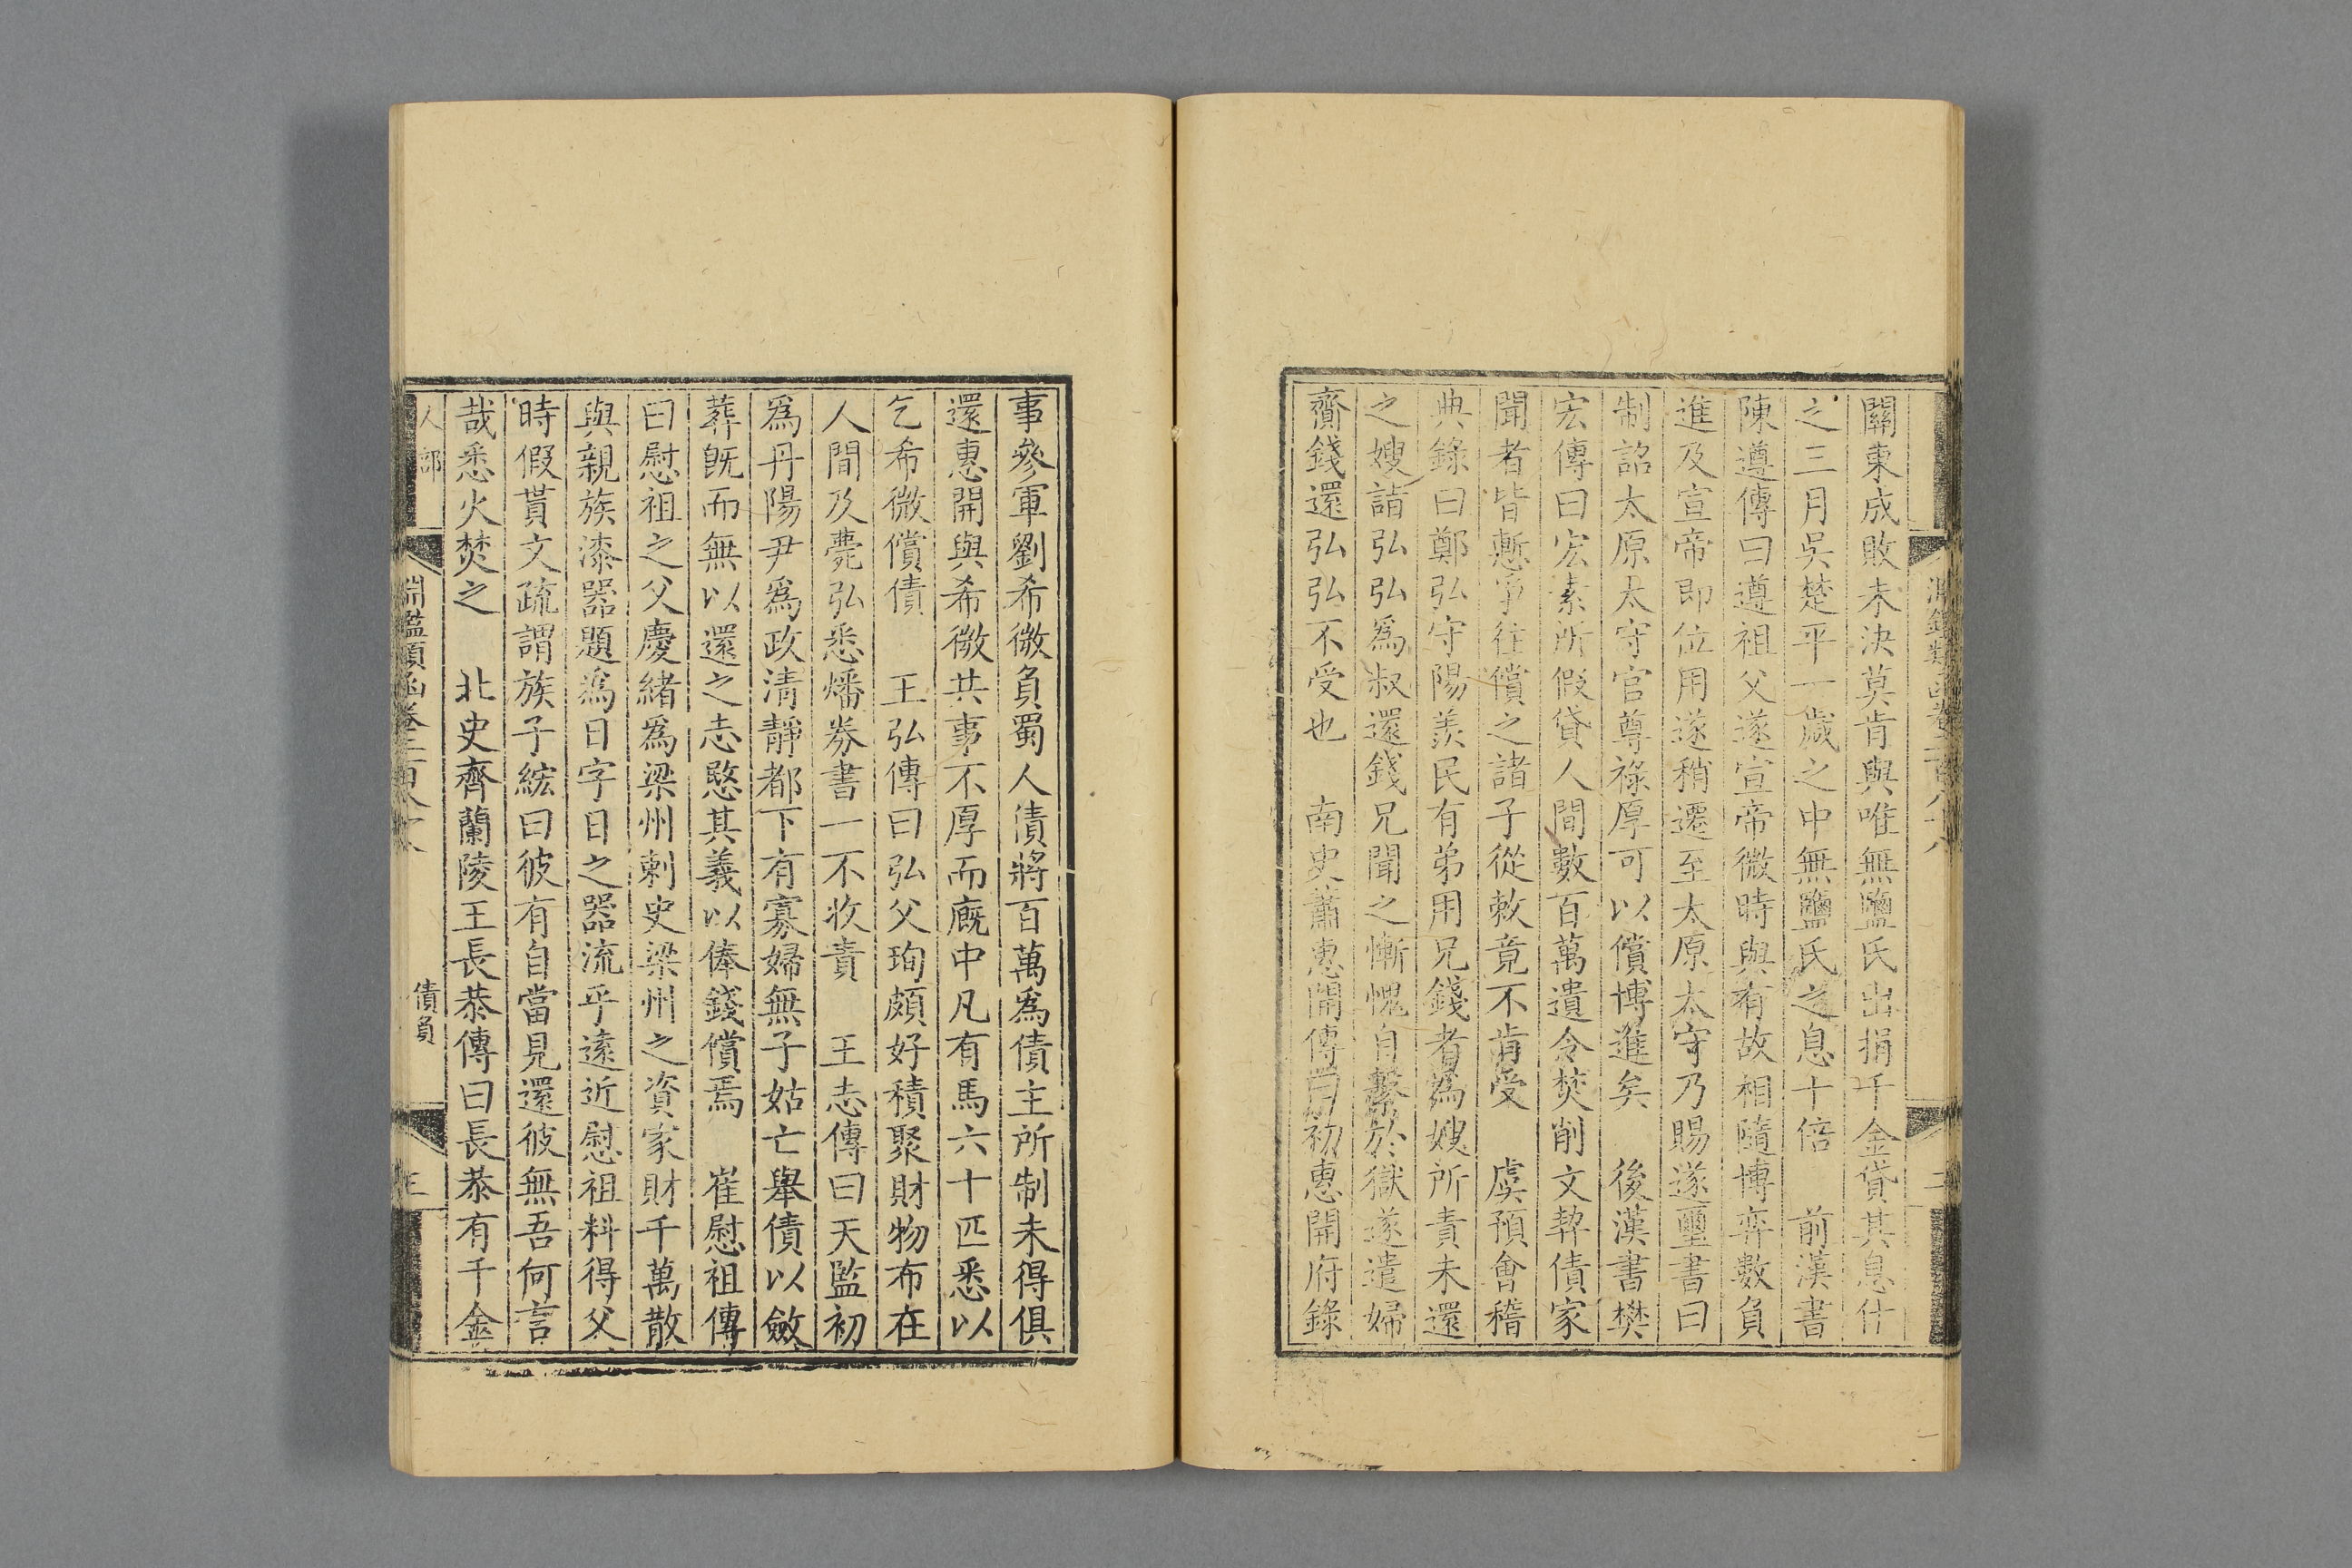 關東成敗未決莫肯與唯無鹽氏出捐千金貸其息什
之三月吳楚平一歲之中無鹽氏之息十倍　前漢書
陳遵傳曰遵祖父遂宣帝微時與有故相隨博弈數負
進及宣帝即位用遂稍遷至太原太守乃賜遂璽書曰
制詔太原太守官尊祿厚可以償博進矣　後漢書樊
宏傳曰宏素所假貸人間數百萬遺令焚削文契債家
聞者皆慙爭往償之諸子從敕竟不肯受　虞預會稽
典錄曰鄭弘守陽羨民有弟用兄錢者為嫂所責未還
之嫂詣弘弘爲叔還錢兄聞之慚愧自繫於獄遂遣婦
齎錢還弘弘不受也　南史蕭惠開傳曰初惠開府錄
事參軍劉希微負蜀人債將百萬爲債主所制未得俱
還惠開與希微共事不厚而廐中凡有馬六十匹悉以
乞希微償債　王弘傳曰弘父珣頗好積聚財物布在
人間及薨弘悉燔券書一不收責　王志傳曰天監初
爲丹陽尹爲政淸靜都下有寡婦無子姑亡舉債以斂
葬旣而無以還之志愍其義以俸錢償焉　崔慰祖傳
曰慰祖之父慶緒爲梁州刺史梁州之資家財千萬散
與親族漆器題爲日字日之器流乎遠近慰祖料得父
時假貰文疏謂族子紘曰彼有自當見還彼無吾何言
哉悉火焚之　北史齊蘭陵王長恭傳曰長恭有千金
人部
淵鑑類函卷二百八十八
債負
三